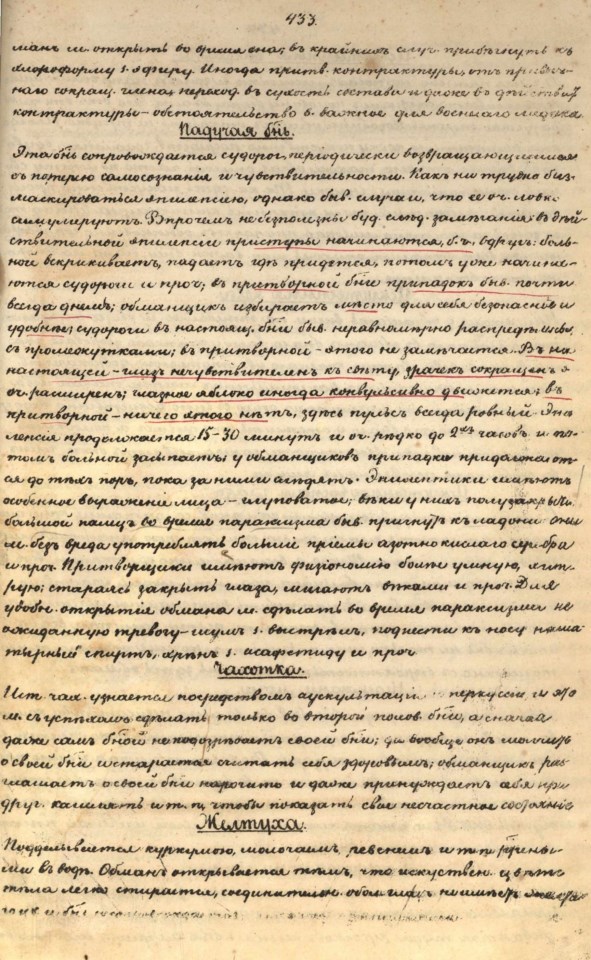 433.
манъ м. открыть во время сна; въ крайнихъ случ. прибѣгнуть къ
хлороформу s. эфиру. Иногда притв. контрактуры, отъ
наго сокращ. члена, переход. въ сухость состава и даже въ дѣйствит.
контрактуры – обстоятельство б. важное для военнаго медика
Падучая бнь.
Эта бнь сопровождается судорог., періодически возвращающимися
съ потерею самосознанія и чувствительности. Какъ ни трудно
маскироваться эпилепсію, однако быв. случаи, что ее оч. ловко
симулируютъ. Впрочемъ не безполезны буд. слѣд. замѣчанія: въ дѣй-
ствительной эпилепсіи приступы начинаются, б. ч. вдругъ: боль-
ной вскрикиваетъ, падаетъ гдѣ придется, потомъ уже начина-
ются судороги и проч; въ притворной бніи припадокъ быв. почти
всегда днемъ; обманщикъ избираетъ мѣсто для себя безопасное и
удобное; судороги въ настоящ. бніи быв. неравномѣрно распредѣлены,
съ промежутками; въ притворной – этого не замѣчается. Въ на
настоящей – глазъ нечувствителенъ къ свѣту, зрачекъ сокращенъ s
оч. расширенъ; глазное яблоко иногда конвульсивно движется; въ
притворной – ничего этого нѣтъ, здѣсь пульсъ всегда ровный. Эпи-
лепсія продолжается 15–30 минутъ и оч. рѣдко до 2хъ часовъ и по-
томъ больной засыпаетъ; у обманщиковъ припадки продолжают-
ся до тѣхъ поръ, пока за ними глядятъ. Эпилептики имѣютъ
особенное выраженіе лица – глуповатое; вѣки у нихъ полузакрыты
большой палецъ во время параксизма быв. пригнутъ къ ладони; они
м. безъ вреда употреблять большіе пріемы азотно кислаго серебра
и проч. Притворщики имѣютъ физіономію болѣе умную, хит-
рую; стараясь закрыть глаза, мигаютъ вѣками и проч. Для
удобн. открытія обмана м. сдѣлать во время параксизма не
ожиданную тревогу – шумъ s. выстрѣлъ, поднести къ носу наша-
тырный спиртъ, хрѣнъ s. асафетиду и проч
Чахотка.
Ист. чах. узнается посредствомъ аускультаціи перкуссіи и это
м. съ успѣхомъ сдѣлать только во второй полов. бніи, а сначала
даже самъ бной не подозрѣваетъ своей бніи; да вообще онъ молчитъ
о своей бніи и старается считать себя здоровымъ; обманщикъ раз-
глашаетъ о своей бніи нарочито и даже принуждаетъ себя при
друг. кашлять и т. п, чтобы показать свое несчастное состояніе
Желтуха.
Поддѣлывается куркумою, молочаемъ, ревенемъ и т. п.
ми въ водѣ. Обманъ открывается тѣмъ, что искуствен. цвѣтъ
тѣла легко стирается, соединительн. оболочка не имѣетъ